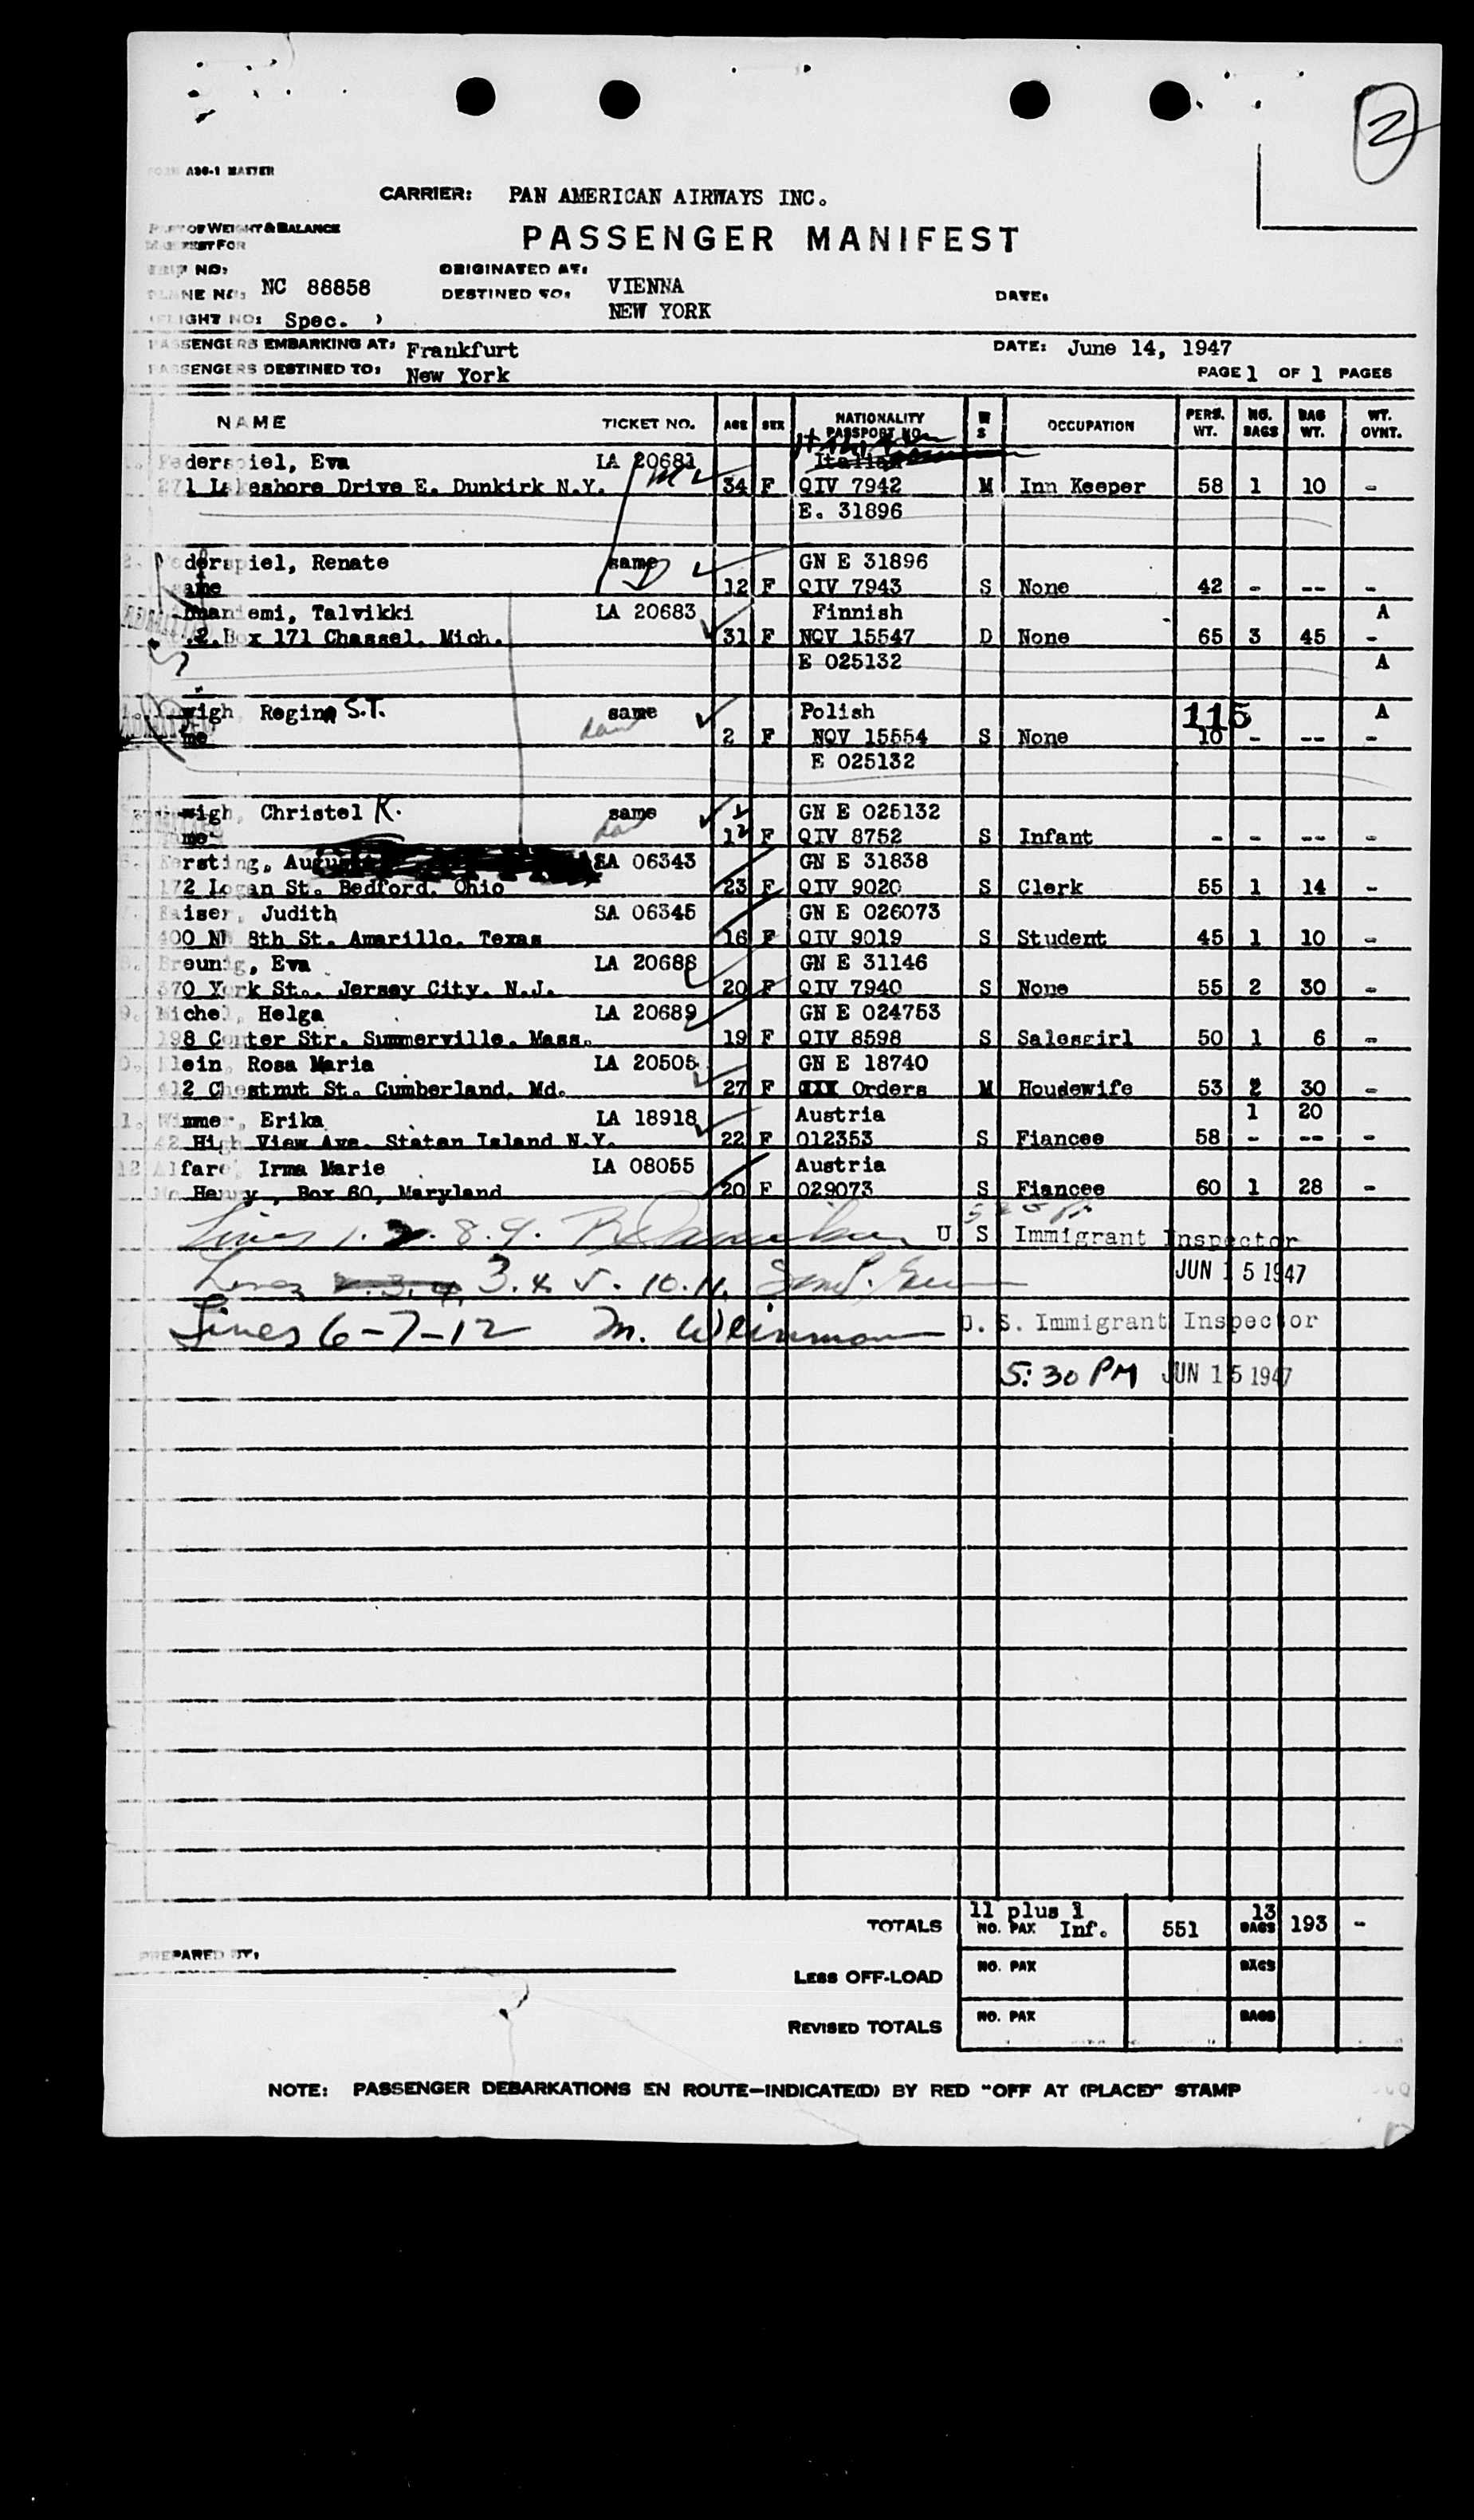 2
FORM A30-1 MASTER
CARRIER: PAN AMERICAN AIRWAYS INC.
PART OF WEIGHT & BALANCE
MANIFEST FOR
PASSENGER MANIFEST
TRIP NO:
ORIGINATED AT: VIENNA
PLANE NO: NC 88858
DESTINED TO: NEW YORK
DATE:
(FLIGHT NO: Spec. )
PASSENGERS EMBARKING AT: Frankfurt
DATE: June 14, 1947
PASSENGERS DESTINED TO: New York
PAGE 1 OF 1 PAGES
NAME TICKET NO. AGE SEX NATIONALITY PASSPORT NO. M S OCCUPATION PERS. WT. NO. BAGS BAG WT. WT. OVNT.
Federspiel, Eva LA 20681 Italian
271 Lakeshore Drive E. Dunkirk N.Y. 34 F QIV 7942 M Inn Keeper 58 1 10 -
E. 31896
2. Federspiel, Renate same GN E 31896
same 12 F QIV 7943 S None 42 - -- -
emi, Talvikki LA 20683 Finnish A
Box 171 Chassel, Mich. 31 F NQV 15547 D None 65 3 45 -
E 025132 A
Regina S.T. same Polish 115 A
2 F NQV 15554 S None 10 - -- -
E 025132
Christel K. same GN E 025132
1 F QIV 8752 S Infant - - -- -
Kersting, SA 06343 GN E 31838
172 Logan St. Bedford, Ohio 23 F QIV 9020 S Clerk 55 1 14 -
Kaiser, Judith SA 06345 GN E 026073
400 NW 8th St. Amarillo, Texas 16 F QIV 9019 S Student 45 1 10 -
8. Breunig, Eva LA 20688 GN E 31146
370 York St., Jersey City, N.J. 20 F QIV 7940 S None 55 2 30 -
9. Michel, Helga LA 20689 GN E 024753
198 Center Str. Summerville, Mass. 19 F QIV 8598 S Salesgirl 50 1 6 -
Klein, Rosa Maria LA 20505 GN E 18740
412 Chestnut St. Cumberland, Md. 27 F Orders M Housewife 53 2 30 -
Wimmer, Erika LA 18918 Austria 1 20
42 High View Ave. Staten Island N.Y. 22 F 012353 S Fiancee 58 - -- -
12 Alfare, Irma Marie LA 08055 Austria
Mc Henry, Box 60, Maryland 20 F 029073 S Fiancee 60 1 28 -
Lines 1. 2. 8. 9. U S Immigrant Inspector
Lines 3. 4. 5. 10. 11. JUN 15 1947
Lines 6-7-12 M. Weinman U. S. Immigrant Inspector
5:30 PM JUN 15 1947
TOTALS 11 plus 1 NO. PAX Inf. 551 13 BAGS 193 -
PREPARED BY:
LESS OFF-LOAD NO. PAX BAGS
REVISED TOTALS NO. PAX BAGS
NOTE: PASSENGER DEBARKATIONS EN ROUTE—INDICATE(D) BY RED "OFF AT (PLACE)" STAMP